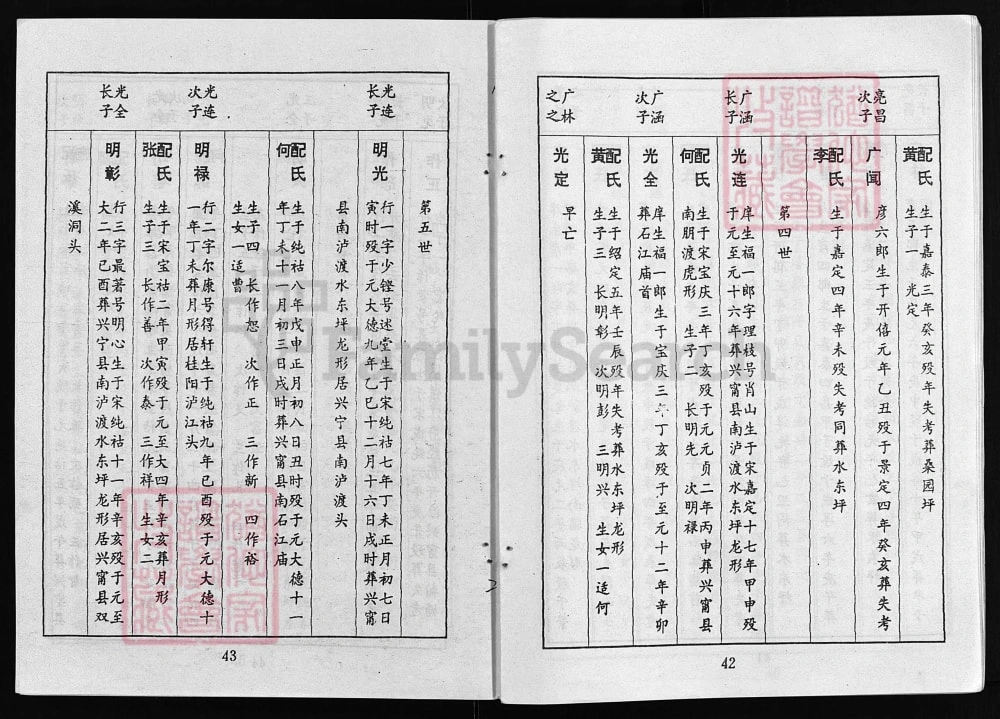 配氏黄
生于嘉泰三年癸亥殁年失考葬桑园坪
生子一 光定
亮昌次子
广闻
彦六郎生于开僖元年乙丑殁于景定四年癸亥葬失考
配氏李
生于嘉定四年辛未殁失考同葬水东坪
第四世
广涵长子
光连
庠生福一郎字理枝号肖山生于宋嘉定十七年甲申殁
于元至元十六年葬兴甯县南泸渡水东坪龙形
配氏何
生于宋宝庆三年丁亥殁于元元贞二年丙申葬兴甯县
南朋渡虎形 生子二 长明先 次明禄
广涵次子
光全
庠生福一郎生于宝庆三年丁亥殁于至元十二年辛卯
葬石江庙首
配氏黄
生于绍定五年壬辰殁年失考葬水东坪龙形
生子三 长明彰 次明彭 三明兴 生女一适何
广林之之
光定
早亡
42
第五世
光连长子
明光
行一字少铿号述堂生于宋纯祜七年丁未正月初七日
寅时殁于元大德九年乙巳十二月十六日戌时葬兴甯
县南泸渡水东坪龙形居兴宁县南泸渡头
配氏何
生于纯祜八年戊申正月初八日丑时殁于元大德十一
年丁未十一月初三日戌时葬兴甯县南石江庙
生子四 长作恕 次作正 三作新 四作裕
生女一适曹
光连次子
明禄
行二字尔康号得轩生于纯祜九年己酉殁于元大德十
一年丁未葬月形居桂阳泸江头
配氏张
生于宋宝祜二年甲寅殁于元至大四年辛亥葬月形
生子三 长作善 次作泰 三作祥 生女二
光全长子
明彰
行三字最著号明心生于宋纯祜十一年辛亥殁于元至
大二年己酉葬兴宁县南泸渡水东坪龙形居兴甯县双
溪洞头
43
FamilySearch